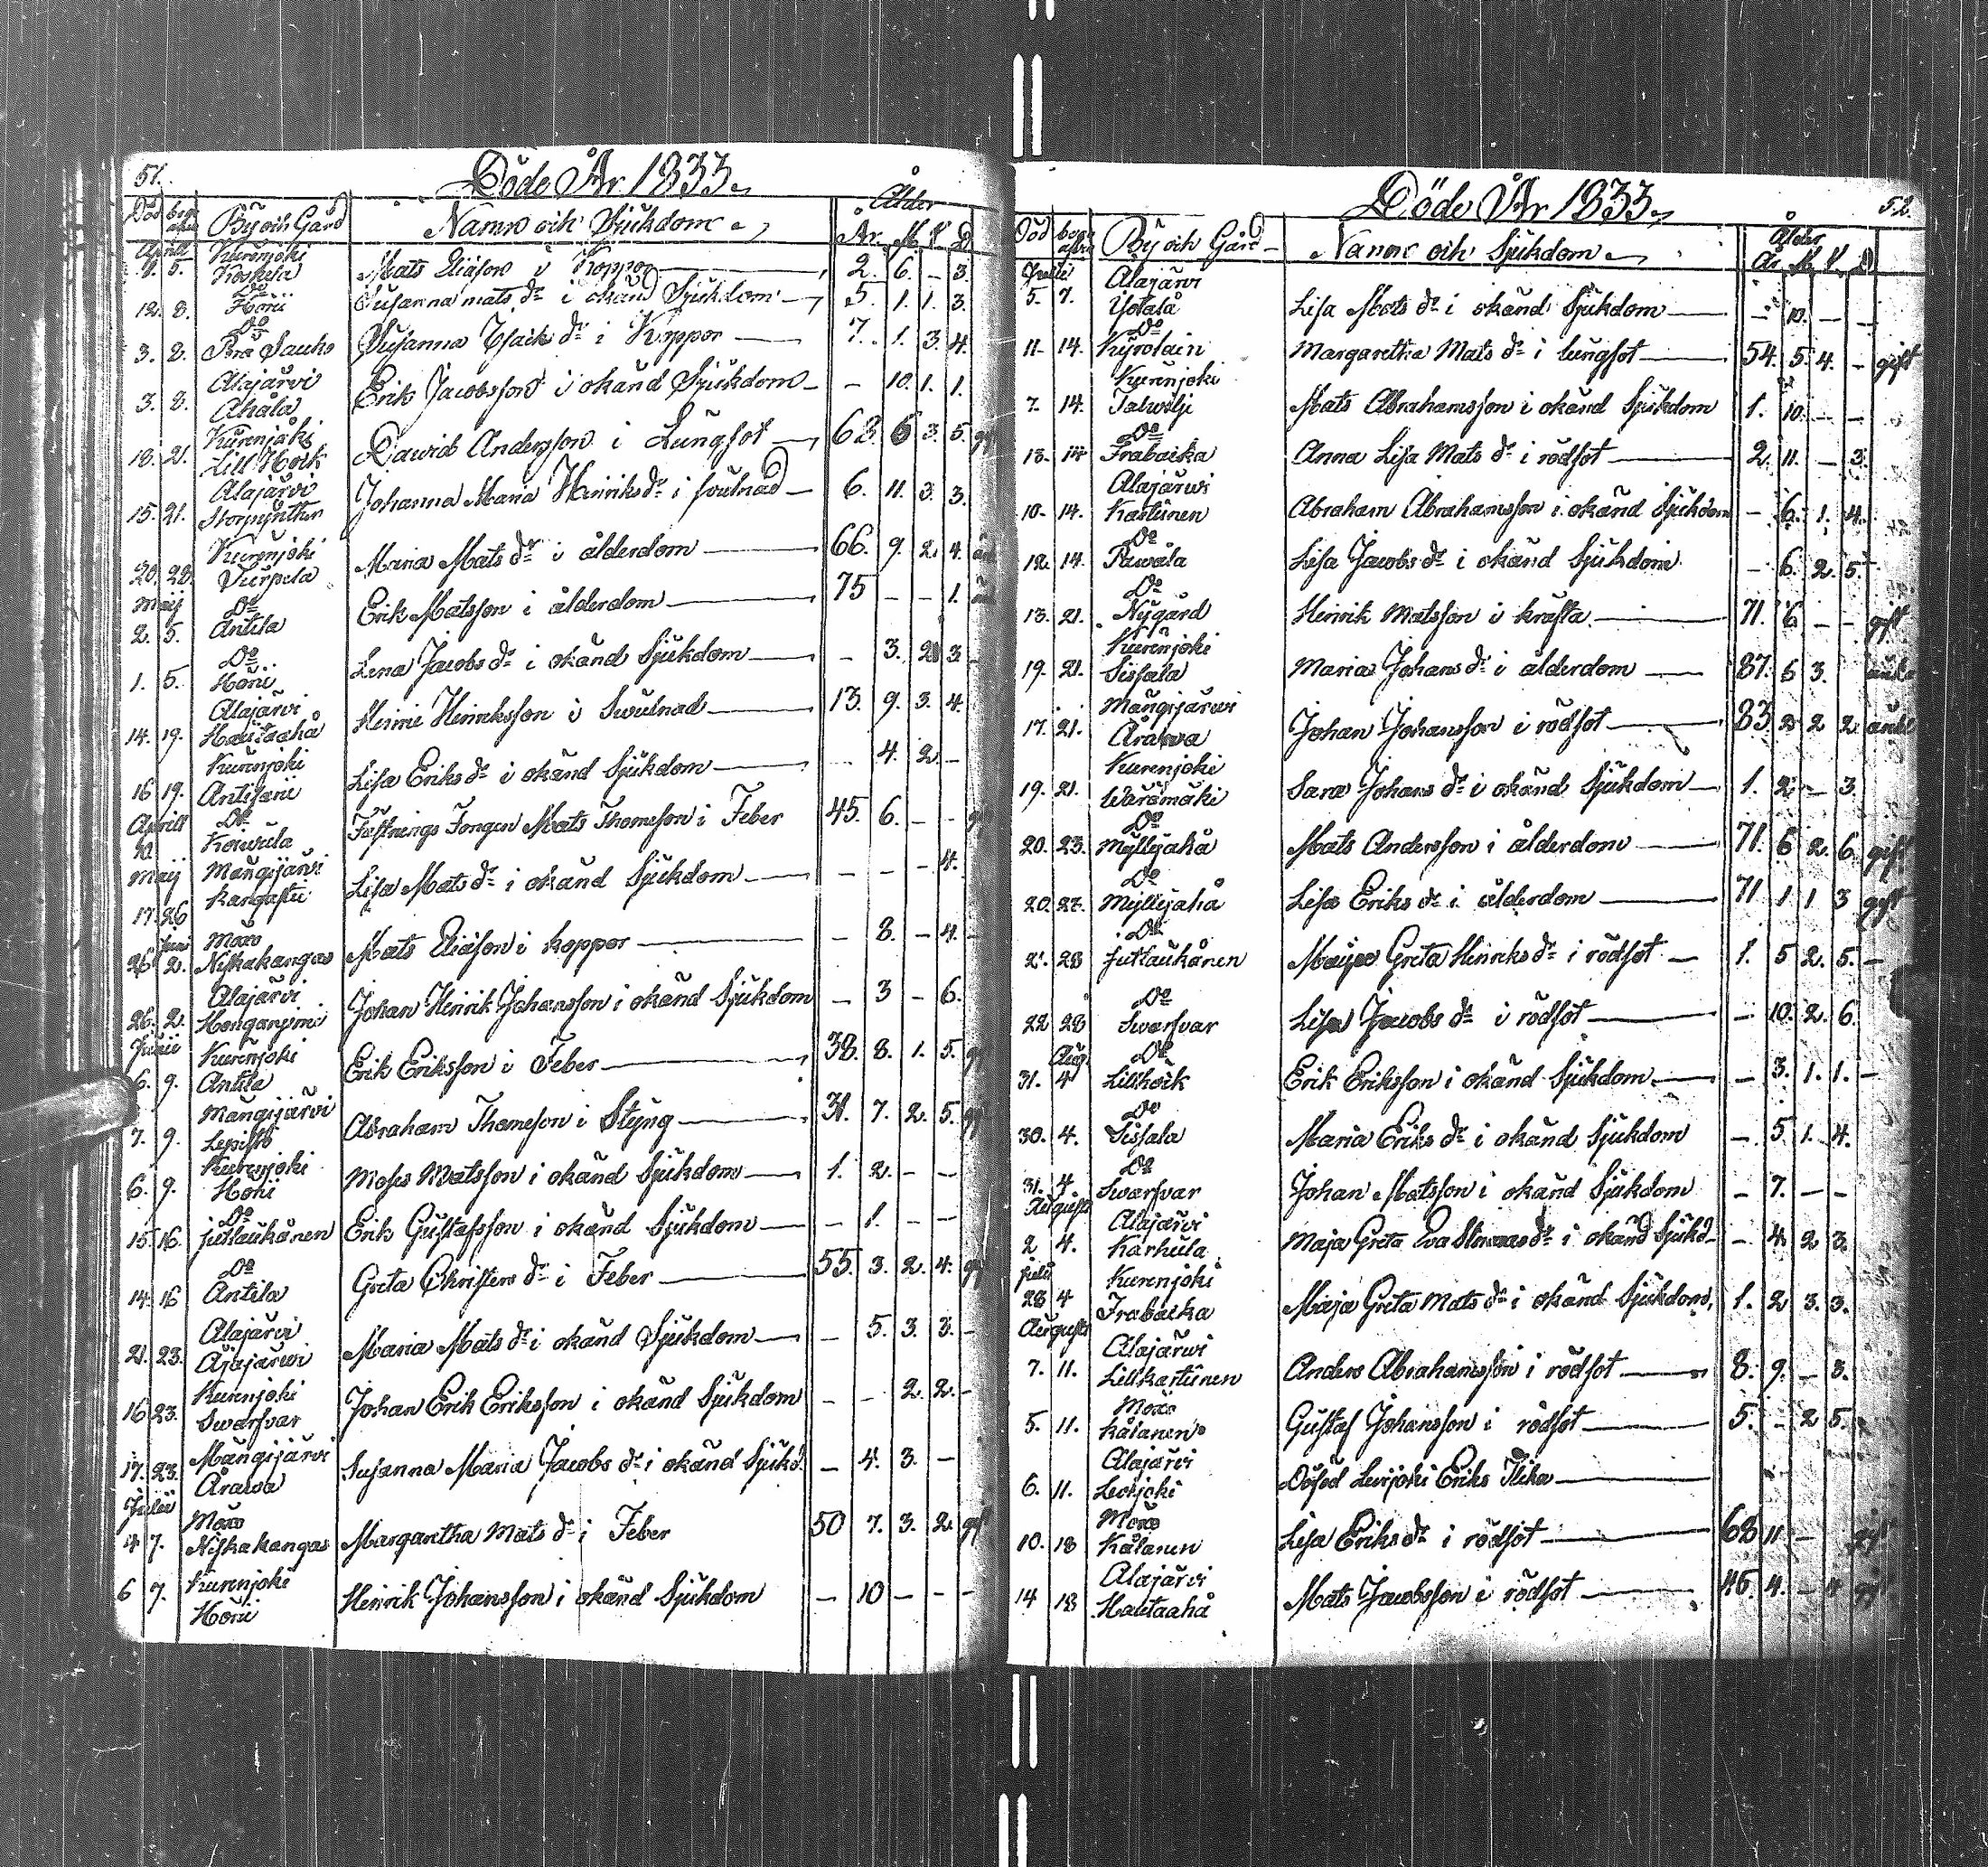 51.
Döde År 1833.
Död begr. By och Gård Namn och Sjukdom Ålder År M V D
Aprill Kurenjoki
1. 5. Koskela Mats Eliasson i Koppor 2. 6. – 3.
Do
12. 8. Höni Susanna Mats dr i okänd Sjukdom 5. 1. 1. 3.
Do
3. 8. Perä Sauko Susanna Isack dr i Koppor 7. 1. 3. 4.
Alajärvi
3. 8. Ahåla Erik Jacobsson i okänd Sjukdom – 10. 1. 1.
Kurenjåki
18. 21. Lill Hork Dawid Andersson i Lungsot 62. 6 3. 5.
Alajärvi
15. 21. Storpynthen Johanna Maria Henriksdr i svulnad 6. 11. 3. 3.
Kurenjoki
20. 28. Purpela Maria Mats dr i ålderdom 66. 9. 2. 4.
Maij Do
2. 5. Antila Erik Matsson i ålderdom 75 – – 1.
Do
1. 5. Höni Lena Jacobs dr i okänd Sjukdom – 3. 2 3.
Alajärvi
14. 19. Hautaahå Heinric Heinriksson i Swulnad 13. 9. 3. 4.
Kurenjoki
16 19. Antisarii Lisa Eriks dr i okänd Sjukdom – 4. 2. –
Aprill Do
Koivula Fästnings Fongen Mats Thomeson i Feber 45. 6. – –
Maij Mängijärvi
17. 26 Kangastii Lisa Mats dr i okänd Sjukdom – – – 4.
Juni Möxö
26 2. Niskakangas Mats Eliasson i koppor – 8. – 4. –
Alajärvi
26. 2. Honganpimi Johan Heinrik Johansson i okänd Sjukdom – 3 – 6.
Junii Kurenjoki
6. 9. Antila Erik Eriksson i Feber 38. 8. 1. 5.
Mängijärvi
7. 9. Lepistö Abraham Thomeson i Styng 31. 7. 2. 5.
Kurenjoki
6. 9. Höni Moses Matsson i okänd Sjukdom 1. 2. – –
Do
15. 16. Jutlaukånen Erik Gustafsson i okänd Sjukdom – 1. – –
Do
14. 16 Antila Greta Christers dr i Feber 55. 3. 2. 4.
Alajärvi
21. 23. Äjajärwi Maria Mats dr i okänd Sjukdom – 5. 3. 3. –
Kurenjoki
16 23. Swarfvar Johan Erik Eriksson i okänd Sjukdom – – 2. 2. –
Mängijärvi
17. 23. Årawa Susanna Maria Jacobs dr i okänd Sjukd. – 4. 3. –
Julii Möxö
4 7. Niskakangas Margaretha Mats dr i Feber 50 7. 3. 2.
Kurenjoki
6 7. Höni Heinrik Johansson i okänd Sjukdom – 10 – – –
Döde År 1833. 52.
Död begr. By och Gård Namn och Sjukdom Ålder År M V D
Julii Alajärvi
5. 7. Yötalå Lisa Mats dr i okänd Sjukdom – 10. – –
Do
11. 14. Kyrolain Margaretha Mats dr i lungsot 54. 5. 4. – gift
Kurenjoki
7. 14. Talwilji Mats Abrahamsson i okänd Sjukdom 1. 10. – –
Do
13. 14 Frabacka Anna Lisa Mats dr i rödsot 2. 11. – 3.
Alajärwi
10. 14. Kastinen Abraham Abrahamsson i okänd Sjukdom – 6. 1. 4.
Do
12. 14. Pawåla Lisa Jacobs dr i okänd Sjukdom – 6. 2. 5.
Do
13. 21. Nygård Heinrik Matsson i kräfta 71. 6 – – gift
Kurenjoki
19. 21. Sissala Maria Johans dr i ålderdom 87. 6 3. änka
Mängijärwi
17. 21. Årawa Johan Johansson i rödsot 83. 2 2 2 änkl
Kurenjoki
19. 21. Waramäki Sara Johans dr i okänd Sjukdom 1. 2. – 3.
Do
20. 23. Myllyåhå Mats Andersson i ålderdom 71. 6 2. 6 gift
Do
20. 27. Myllyåhå Lisa Eriks dr i ålderdom 71 1 1 3 gift
Do
21. 28 Jutlaukånen Maija Greta Henriks dr i rödsot 1. 5 2. 5. –
Do
22 28 Swarfvar Lisa Jacobs dr i rödsot – 10. 2. 6.
Aug. Do
31. 4 Lillhörk Erik Eriksson i okänd Sjukdom – 3. 1. 1. –
Do
30. 4. Sissala Maria Eriks dr i okänd Sjukdom – 5. 1. 4.
Do
31. 4 Swarfvar Johan Matsson i okänd Sjukdom – 7. – –
Augusti Alajärvi
2 4. Karhula Maja Greta Eva dr i okänd Sjukd – 4. 2 3.
Julii Kurenjoki
28 4 Frabacka Maja Greta Mats dr i okänd Sjukdom. 1. 2 3. 3.
Augusti Alajärwi
7. 11. Lillkastinen Anders Abrahamsson i rödsot 8. 9. – 3.
Möxö
5. 11. Kålanen Gustaf Johansson i rödsot 5. – 2 5.
Alajärvi
6. 11. Levijoki Döföd Levijoki Eriks Flika
Möxö
10. 18 Kålanen Lisa Eriks dr i rödsot 68 11 – gift
Alajärvi
14 18 Hautaahå Mats Jacobsson i rödsot 46. 4. – 4 gift